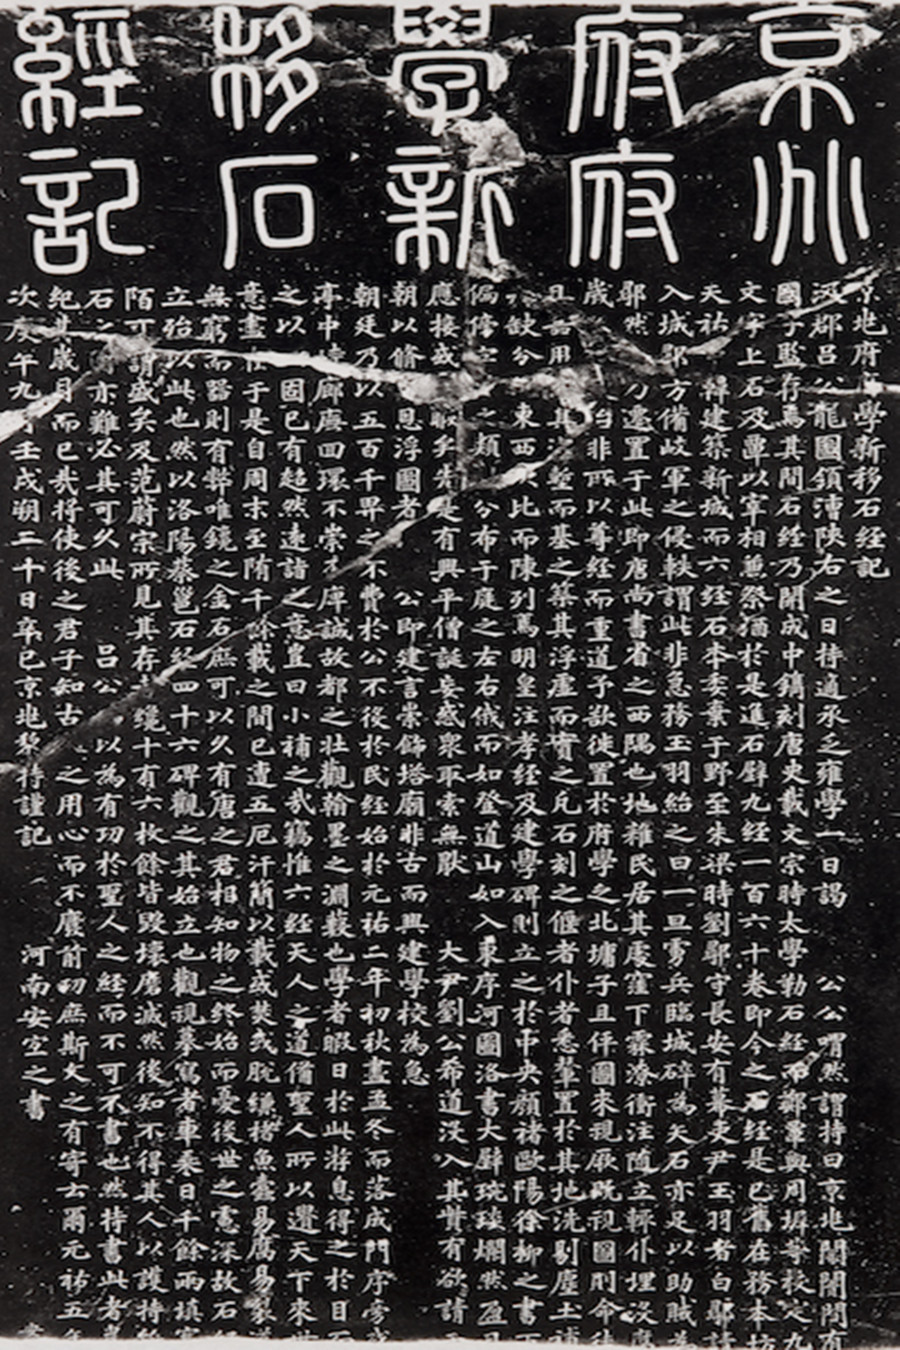 京兆
府府
學新
移石
經記
京兆府府學新移石經記
汲郡呂公龍圖領漕陝右之日持適承乏雍學一日謁 公公喟然謂持曰京兆闤闠間有
國子監存焉其間石經乃開成中鐫刻唐史載文宗時太學勒石經而鄭覃與周墀等校定九
文字上石及覃以宰相兼祭酒於是進石壁九經一百六十卷即今之石經是已舊在務本坊
天祐韓建築新城而六經石本委棄于野至朱梁時劉鄩守長安有幕吏尹玉羽者白鄩請
入城鄩方備岐軍之侵軼謂此非急務玉羽紿之曰一旦虜兵臨城碎為矢石亦足以助賊為
鄩然乃遷置于此即唐尚書省之西隅也地雜民居其處窪下霖潦衝注隨立輒仆埋沒腐
歲殆非所以尊經而重道予欲徙置於府學之北墉子且伻圖來視厥既視圖則命徒
且器用其塹而基之築其浮虛而實之凡石刻之偃者仆者悉輦置於其地洗剔塵土補
缺分東西次比而陳列焉明皇注孝經及建學碑則立之於中央顏褚歐陽徐柳之書下
偏傍字之類分布于庭之左右俄而如登道山如入東序河圖洛書大璧琬琰爛然盈目
應接或暇矣先是有興平僧誕妄惑眾取索無厭 大尹劉公希道沒入其貲有欲請
朝以修恩浮圖者 公即建言崇飾塔廟非古而興建學校為急
朝廷乃以五百千畀之不費於公不役於民經始於元祐二年初秋盡孟冬而落成門序旁啟
亭中峙廊廡回環不崇不庳誠故都之壯觀翰墨之淵藪也學者暇日於此游息得之於目而
之以固已有超然遠詣之意豈曰小補之哉竊惟六經天人之道備聖人所以遺天下來世
意盡在于是自周末至隋千餘載之間已遭五厄汗簡以載或焚或脫縑楮魚蠹易腐易裂道
無窮而器則有弊唯鏡之金石庶可以久有唐之君相知物之終始而憂後世之慮深故石經
立殆以此也然以洛陽蔡邕石經四十六碑觀之其始立也觀視摹寫者車乘日千餘兩填塞
陌可謂盛矣及范蔚宗所見其存纔十有六枚餘皆毀壞磨滅然後知不得其人以護持
石之亦難必其可久此 呂公以為有功於聖人之經而不可不書也然持書此者
紀其歲月而已哉將使後之君子知古之用心而不廢前功庶斯文之有寄云爾元祐五年
次庚午九壬戌朔二十日辛巳京兆黎持謹記 河南安宜之書